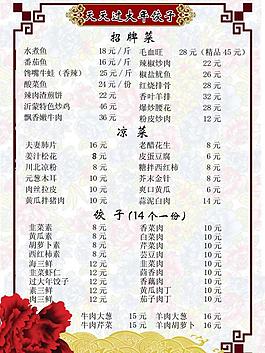 天天过大年饺子
招牌菜
水煮鱼 18 元/斤 毛血旺 28 元（精品 45 元）
番茄鱼 16 元/斤 辣椒炒肉 22 元
馋嘴牛蛙（香辣） 25 元/斤 椒盐鱿鱼 26 元
酸菜鱼 24 元/份 红烧排骨 28 元
辣肉酒煎饼 22 元 香叶羊排 32 元
沂蒙特色炒鸡 46 元 爆炒腰花 28 元
飘香嫩牛肉 36 元 粉皮炒肉 12 元
凉菜
夫妻肺片 16 元 老醋花生 8 元
姜汁松花 8 元 皮蛋豆腐 6 元
川北凉粉 8 元 糖拌西红柿 8 元
元葱木耳 10 元 芥末金针 8 元
肉丝拉皮 10 元 爽口黄瓜 6 元
黄瓜拌猪肉 10 元 蒜泥白肉 14 元
饺子(14个一份)
韭菜素 8 元 香菜肉 10 元
黄瓜素 8 元 白菜肉 10 元
胡萝卜素 8 元 芹菜肉 10 元
西红柿素 8 元 芸豆肉 10 元
海三鲜 12 元 韭菜肉 10 元
韭菜虾仁 12 元 茴香肉 10 元
过大年饺子 12 元 蒜苔肉 10 元
素三鲜 10 元 黄瓜肉丁 10 元
肉三鲜 12 元 茄子肉丁 10 元
牛肉大葱 15 元 羊肉大葱 16 元
牛肉芹菜 15 元 羊肉胡萝卜 16 元